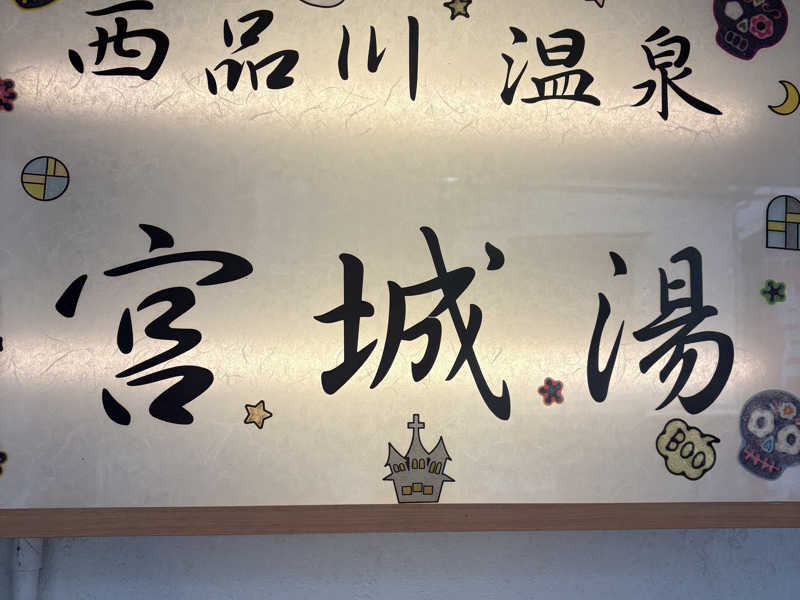 西品川温泉
宮城湯
BOO